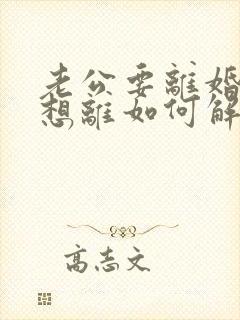 老公要離婚
想離如何解
高志文